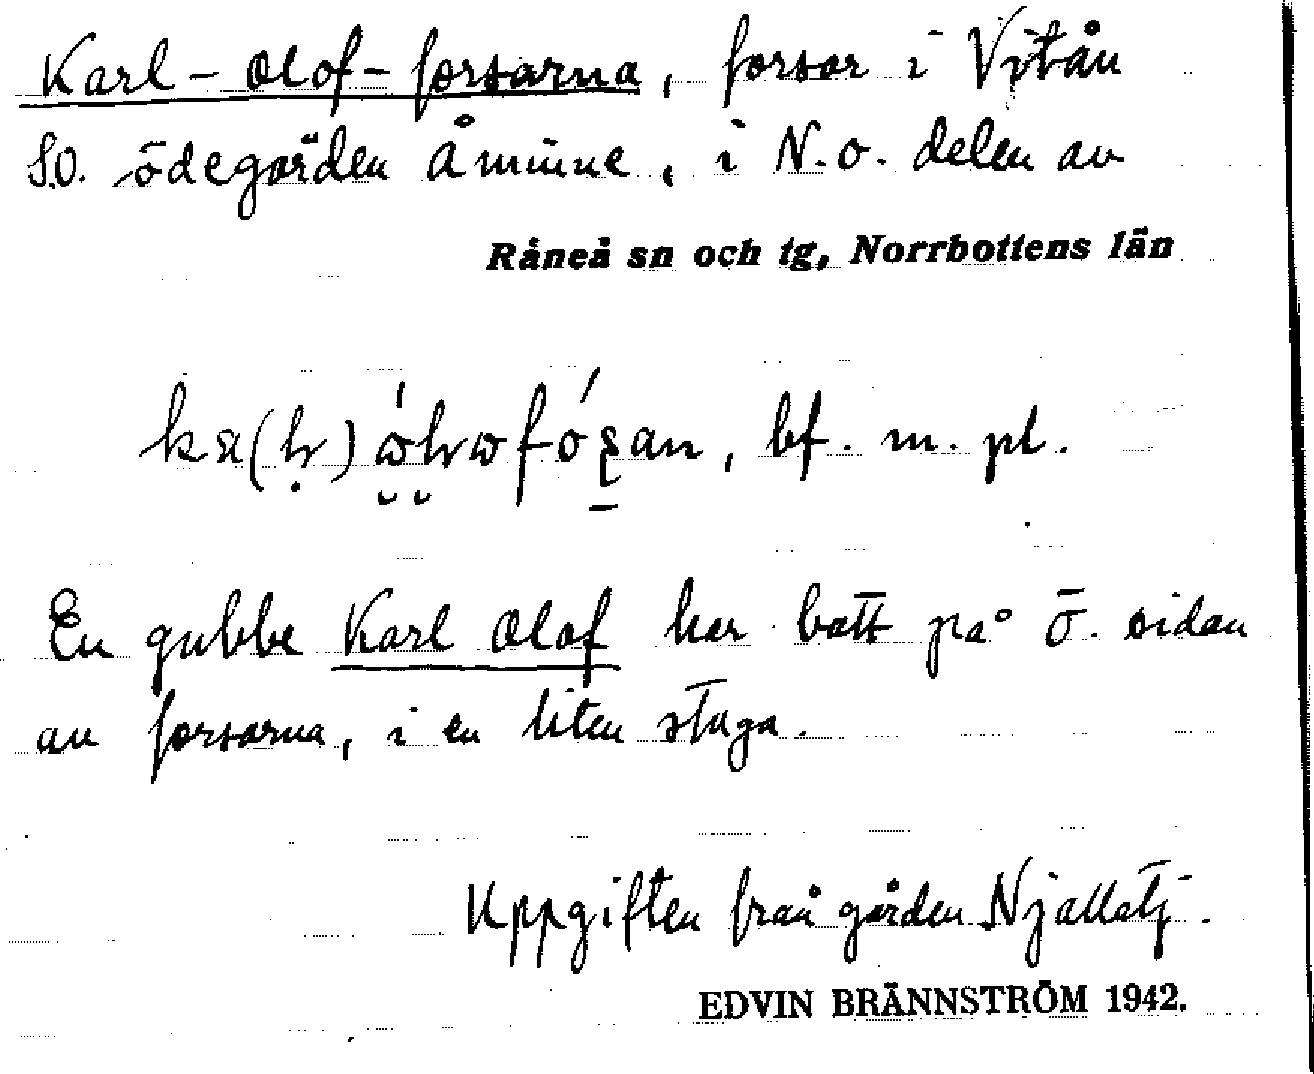 Karl-Olof-forsarna, forsar i Vitån
S.O. ödegården Åminne, i N.O. delen av
Råneå sn och tg, Norrbottens län
bf. m. pl.
En gubbe Karl Olof har bott på ö. sidan
av forsarna, i en liten stuga.
Uppgiften från gården Njallatj.
EDVIN BRÄNNSTRÖM 1942.